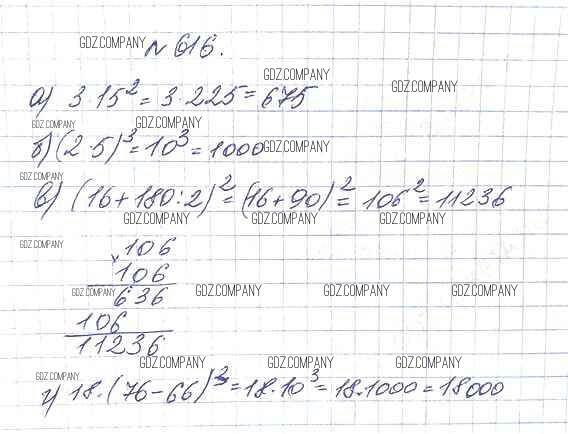 GDZ.COMPANY
№ 616.
GDZ.COMPANY
GDZ.COMPANY
а) 3·15² = 3·225 = 675
GDZ.COMPANY GDZ.COMPANY
б) (2·5)³ = 10³ = 1000 GDZ.COMPANY
GDZ.COMPANY
в) (16+180:2)² = (16+90)² = 106² = 11236
GDZ.COMPANY GDZ.COMPANY GDZ.COMPANY
GDZ.COMPANY 106
× 106
GDZ.COMPANY 636 GDZ.COMPANY GDZ.COMPANY GDZ.COMPANY
106
11236
GDZ.COMPANY GDZ.COMPANY GDZ.COMPANY
GDZ.COMPANY
г) 18·(76-66)³ = 18·10³ = 18·1000 = 18000